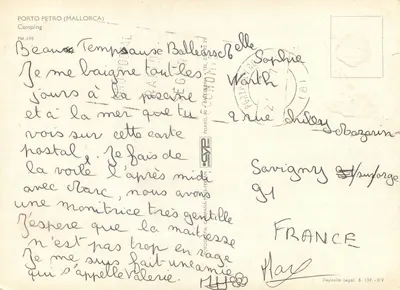 PORTO PETRO (MALLORCA)
Camping
Beaux Temps aux Balleares
Je me baigne tout les
jours à la piscine
et à la mer que tu
vois sur cette carte
postal; Je fais de
la voile l'après midi
avec Marc, nous avons
une monitrice très gentille
J'espere que la maitresse
n'est pas trop en rage
Je me suis fait une amie
qui s'appelle Valerie.
Mlle Sophie
Warth
2 rue Mazarin
Savigny s/sur/orge
91
FRANCE
Deposito Legal B.